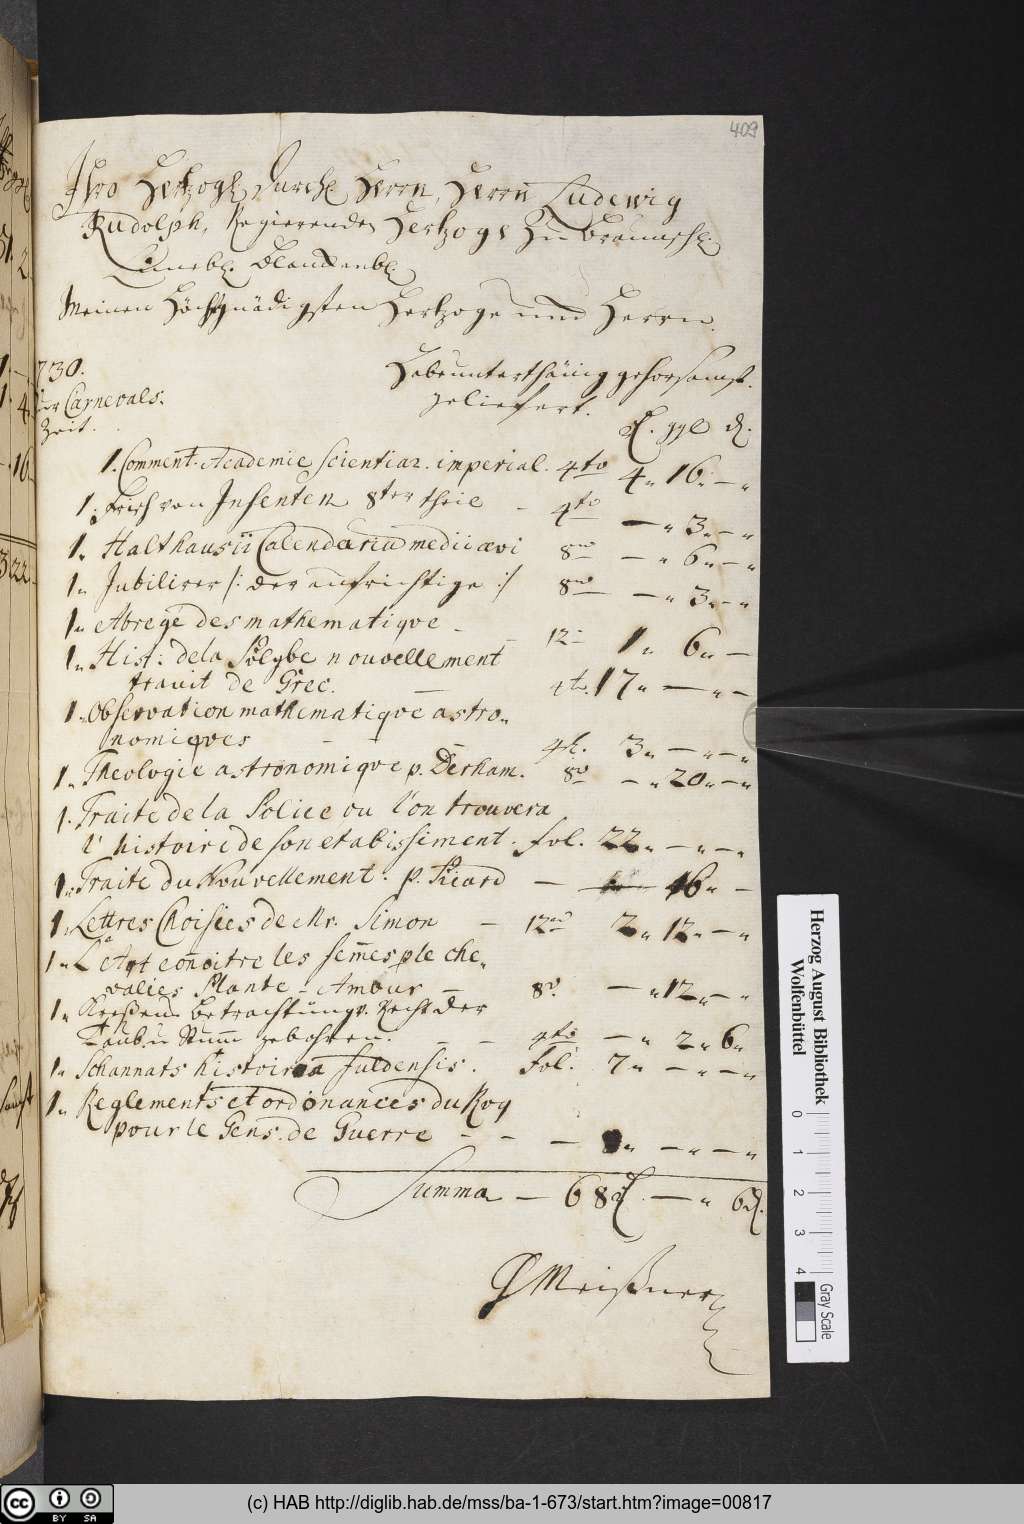 409
Ihro Hertzogl. Durchl. Herrn, Herrn Ludewig
Rudolph, Regierender Hertzogs zu Braunschl.
Lüneb. Blanckenb.
Meinen Höchstgnädigsten Hertzoge und Herrn.
730.
der Carnevals.
Zeit.
Habe unterthänig gehorsamst.
geliefert.
ggl
1. Comment. Academie scientiar. imperial. 4to 4„ 16„ — „
1. Frisch von Insenten 8ter theil - 4to — „ 3„ — „
1„ Halthausii Calendariu medii ævi 8vo — „ 6„ — „
1„ Jubilirer /: der aufrichtige :/ 8vo — „ 3„ — „
1„ Abregé des mathematique -
1„ Hist: de la Polybe nouvellement — 12„ 1„ 6„ —
trauit de Grec. — 4to. 17„ — „ —
1„ Observation mathematique astro„
nomiques — — 4t. 3„ — „ — „
1„ Theologie astronomique p. Derham. 8vo — „ 20„ — „
1. Traité de la Police ou l'on trouvera
l' histoire de son etabissiment. fol. 22„ — „ — „
1„ Traite du Nouvellement. p. Picard — 16„ —
1„ Lettres Choisies de Mr. Simon — 12mo 2„ 12„ — „
1„ L'Art conoitre les femes p le che„
valies Plante - Amour — 8v. — „ 12„ — „
1„ Betrachtung v. Recht der
Taub. u Stum gebohren. — — 4to — „ 2„ 6„
1„ Schannats histoiria fuldensis. fol. 7„ — „ — „
1„ Reglements et ordonances du Roy
pour le Gens. de Guerre - - — „ — „ — „
Summa — 68 — „ 6
Meißner
Herzog August Bibliothek
Wolfenbüttel
0 1 2 3 4
Gray Scale
cc
BY SA
(c) HAB http://diglib.hab.de/mss/ba-1-673/start.htm?image=00817